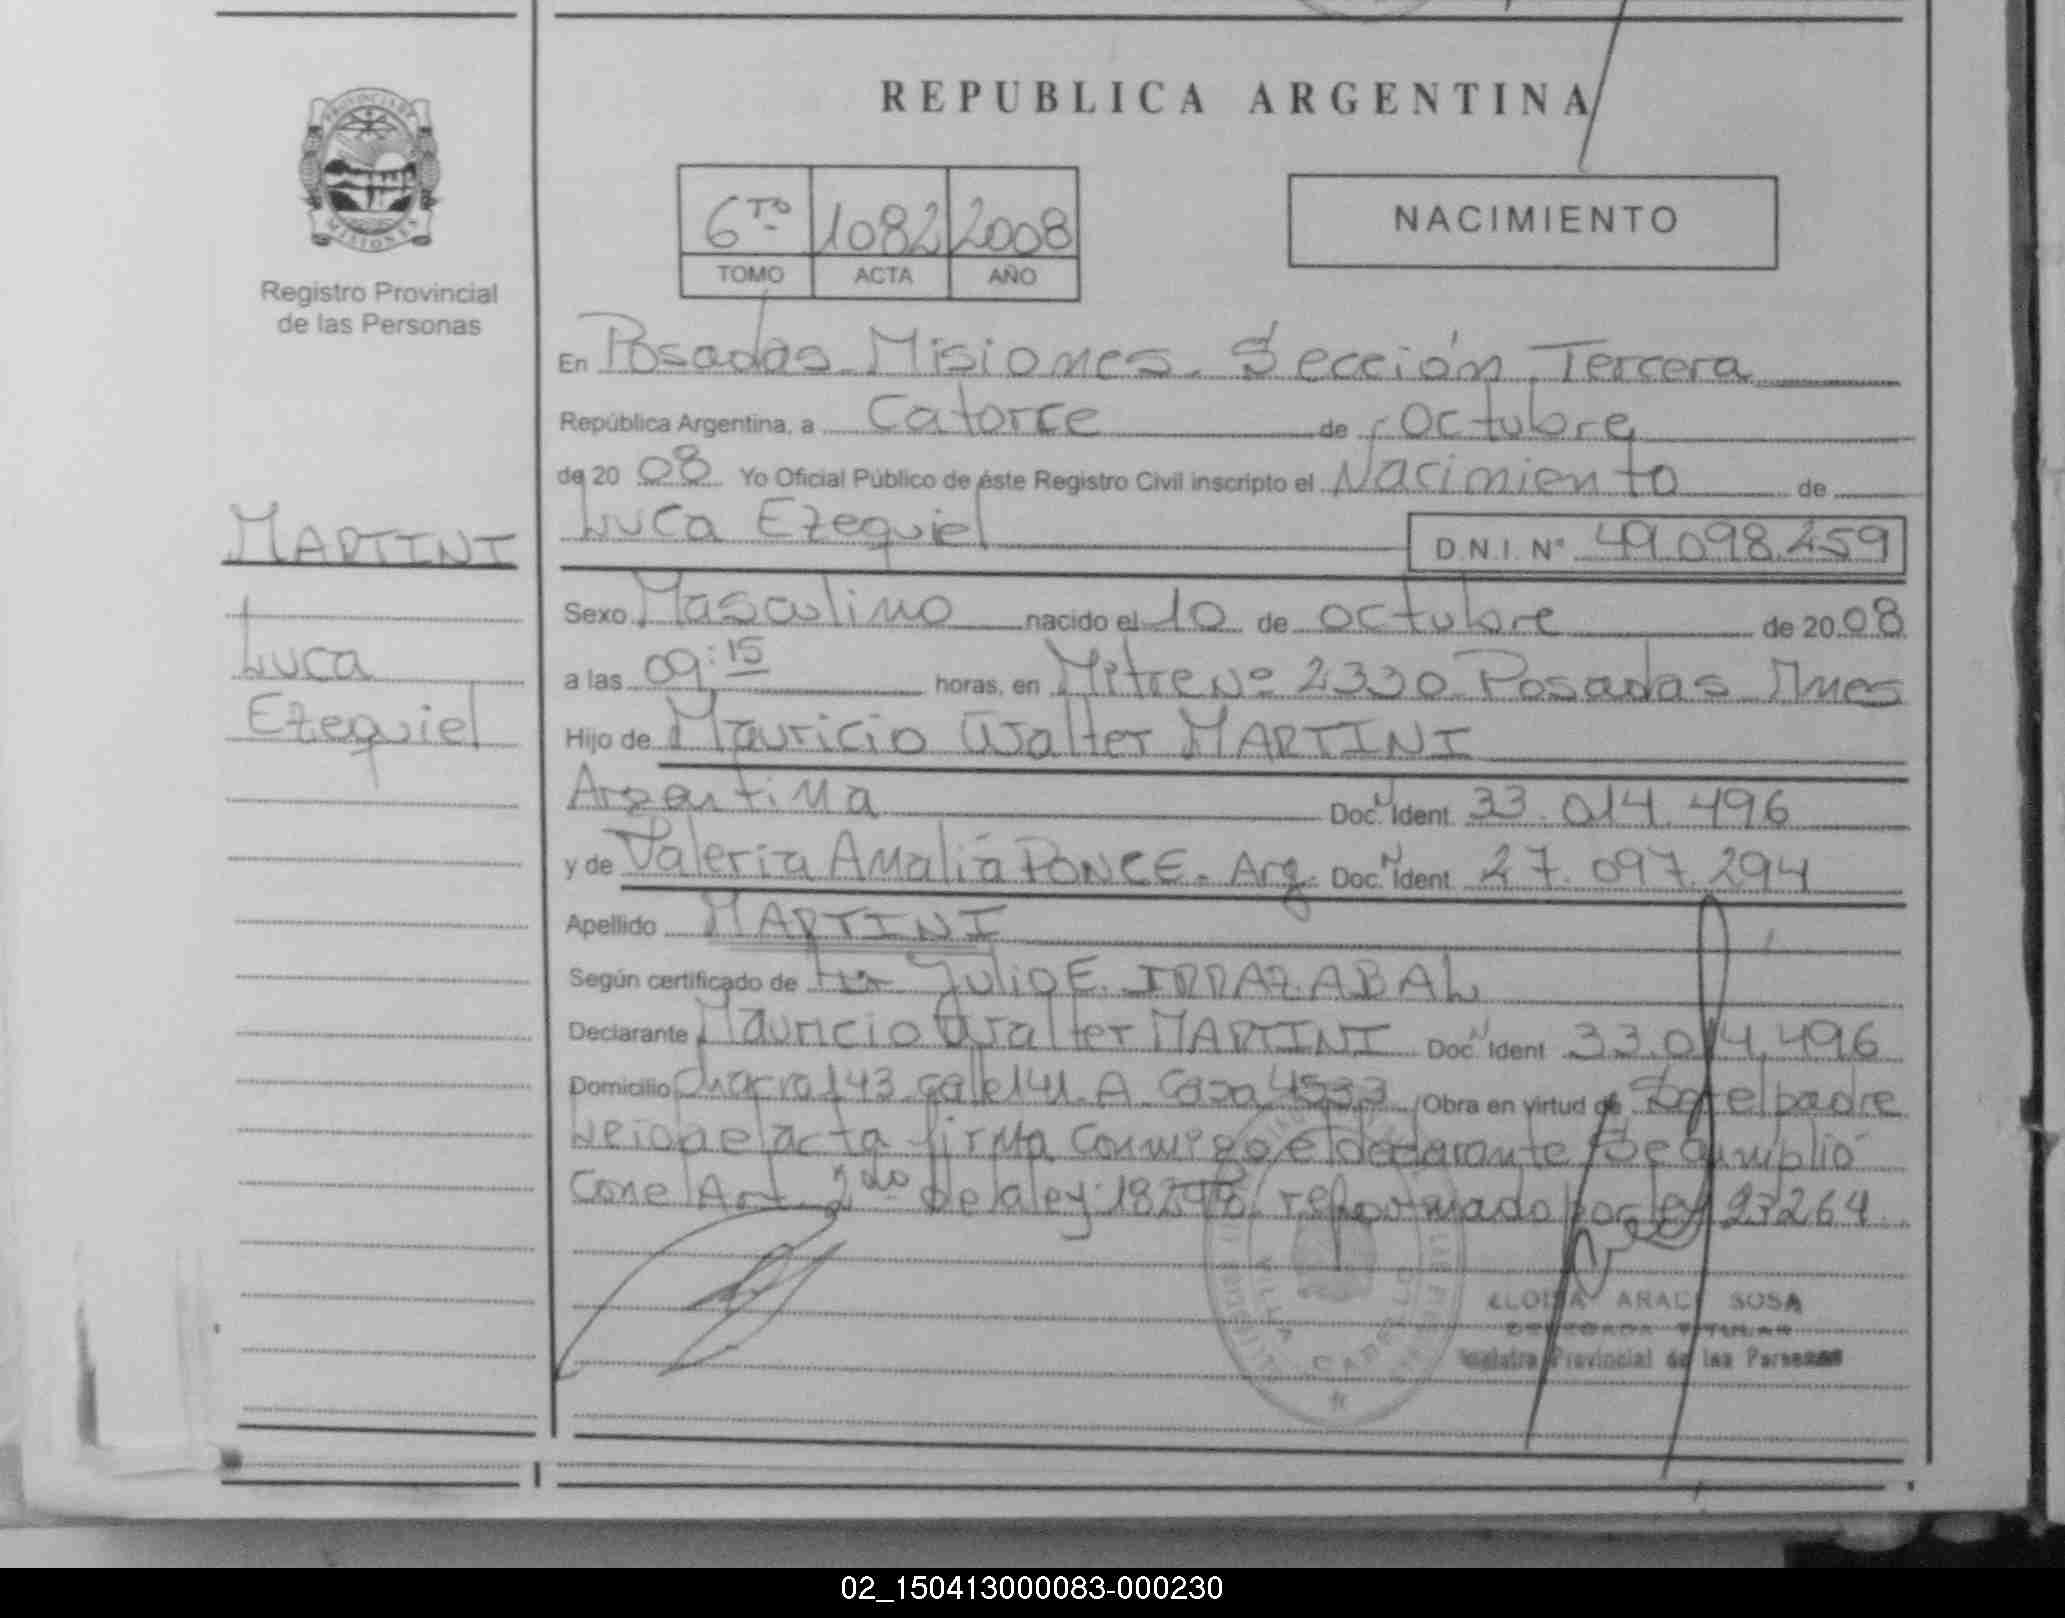 REPUBLICA ARGENTINA
PROVINCIA DE
MISIONES
Registro Provincial
de las Personas
6to 1082 2008
TOMO ACTA AÑO
NACIMIENTO
En Posadas Misiones. Sección Tercera
República Argentina, a Catorce de Octubre
de 20 08 Yo Oficial Público de éste Registro Civil inscripto el Nacimiento de
Luca Ezequiel D.N.I. Nº 49.098.259
MARTINI
Luca
Ezequiel
Sexo Masculino nacido el 10 de octubre de 20 08
a las 09:15 horas, en Mitre Nº 2330 Posadas Mnes
Hijo de Mauricio Walter MARTINI
Argentina Doc. N Ident. 33.014.496
y de Valeria Amalia PONCE. Arg. Doc. N Ident. 27.097.294
Apellido MARTINI
Según certificado de Julio E. IRRAZABAL
Declarante Mauricio Walter MARTINI Doc. N Ident 33.014.496
Domicilio Chacra 143 calle 141 A Casa 4533 Obra en virtud de Ser el padre
Leida el acta firma conmigo el declarante Se cumplio
Con el Art. 2do de la ley 18248 reformado por ley 23264
VILLA CABELLO
ELOISA ARACI SOSA
DELEGADA TITULAR
Registro Provincial de las Personas
02_150413000083-000230